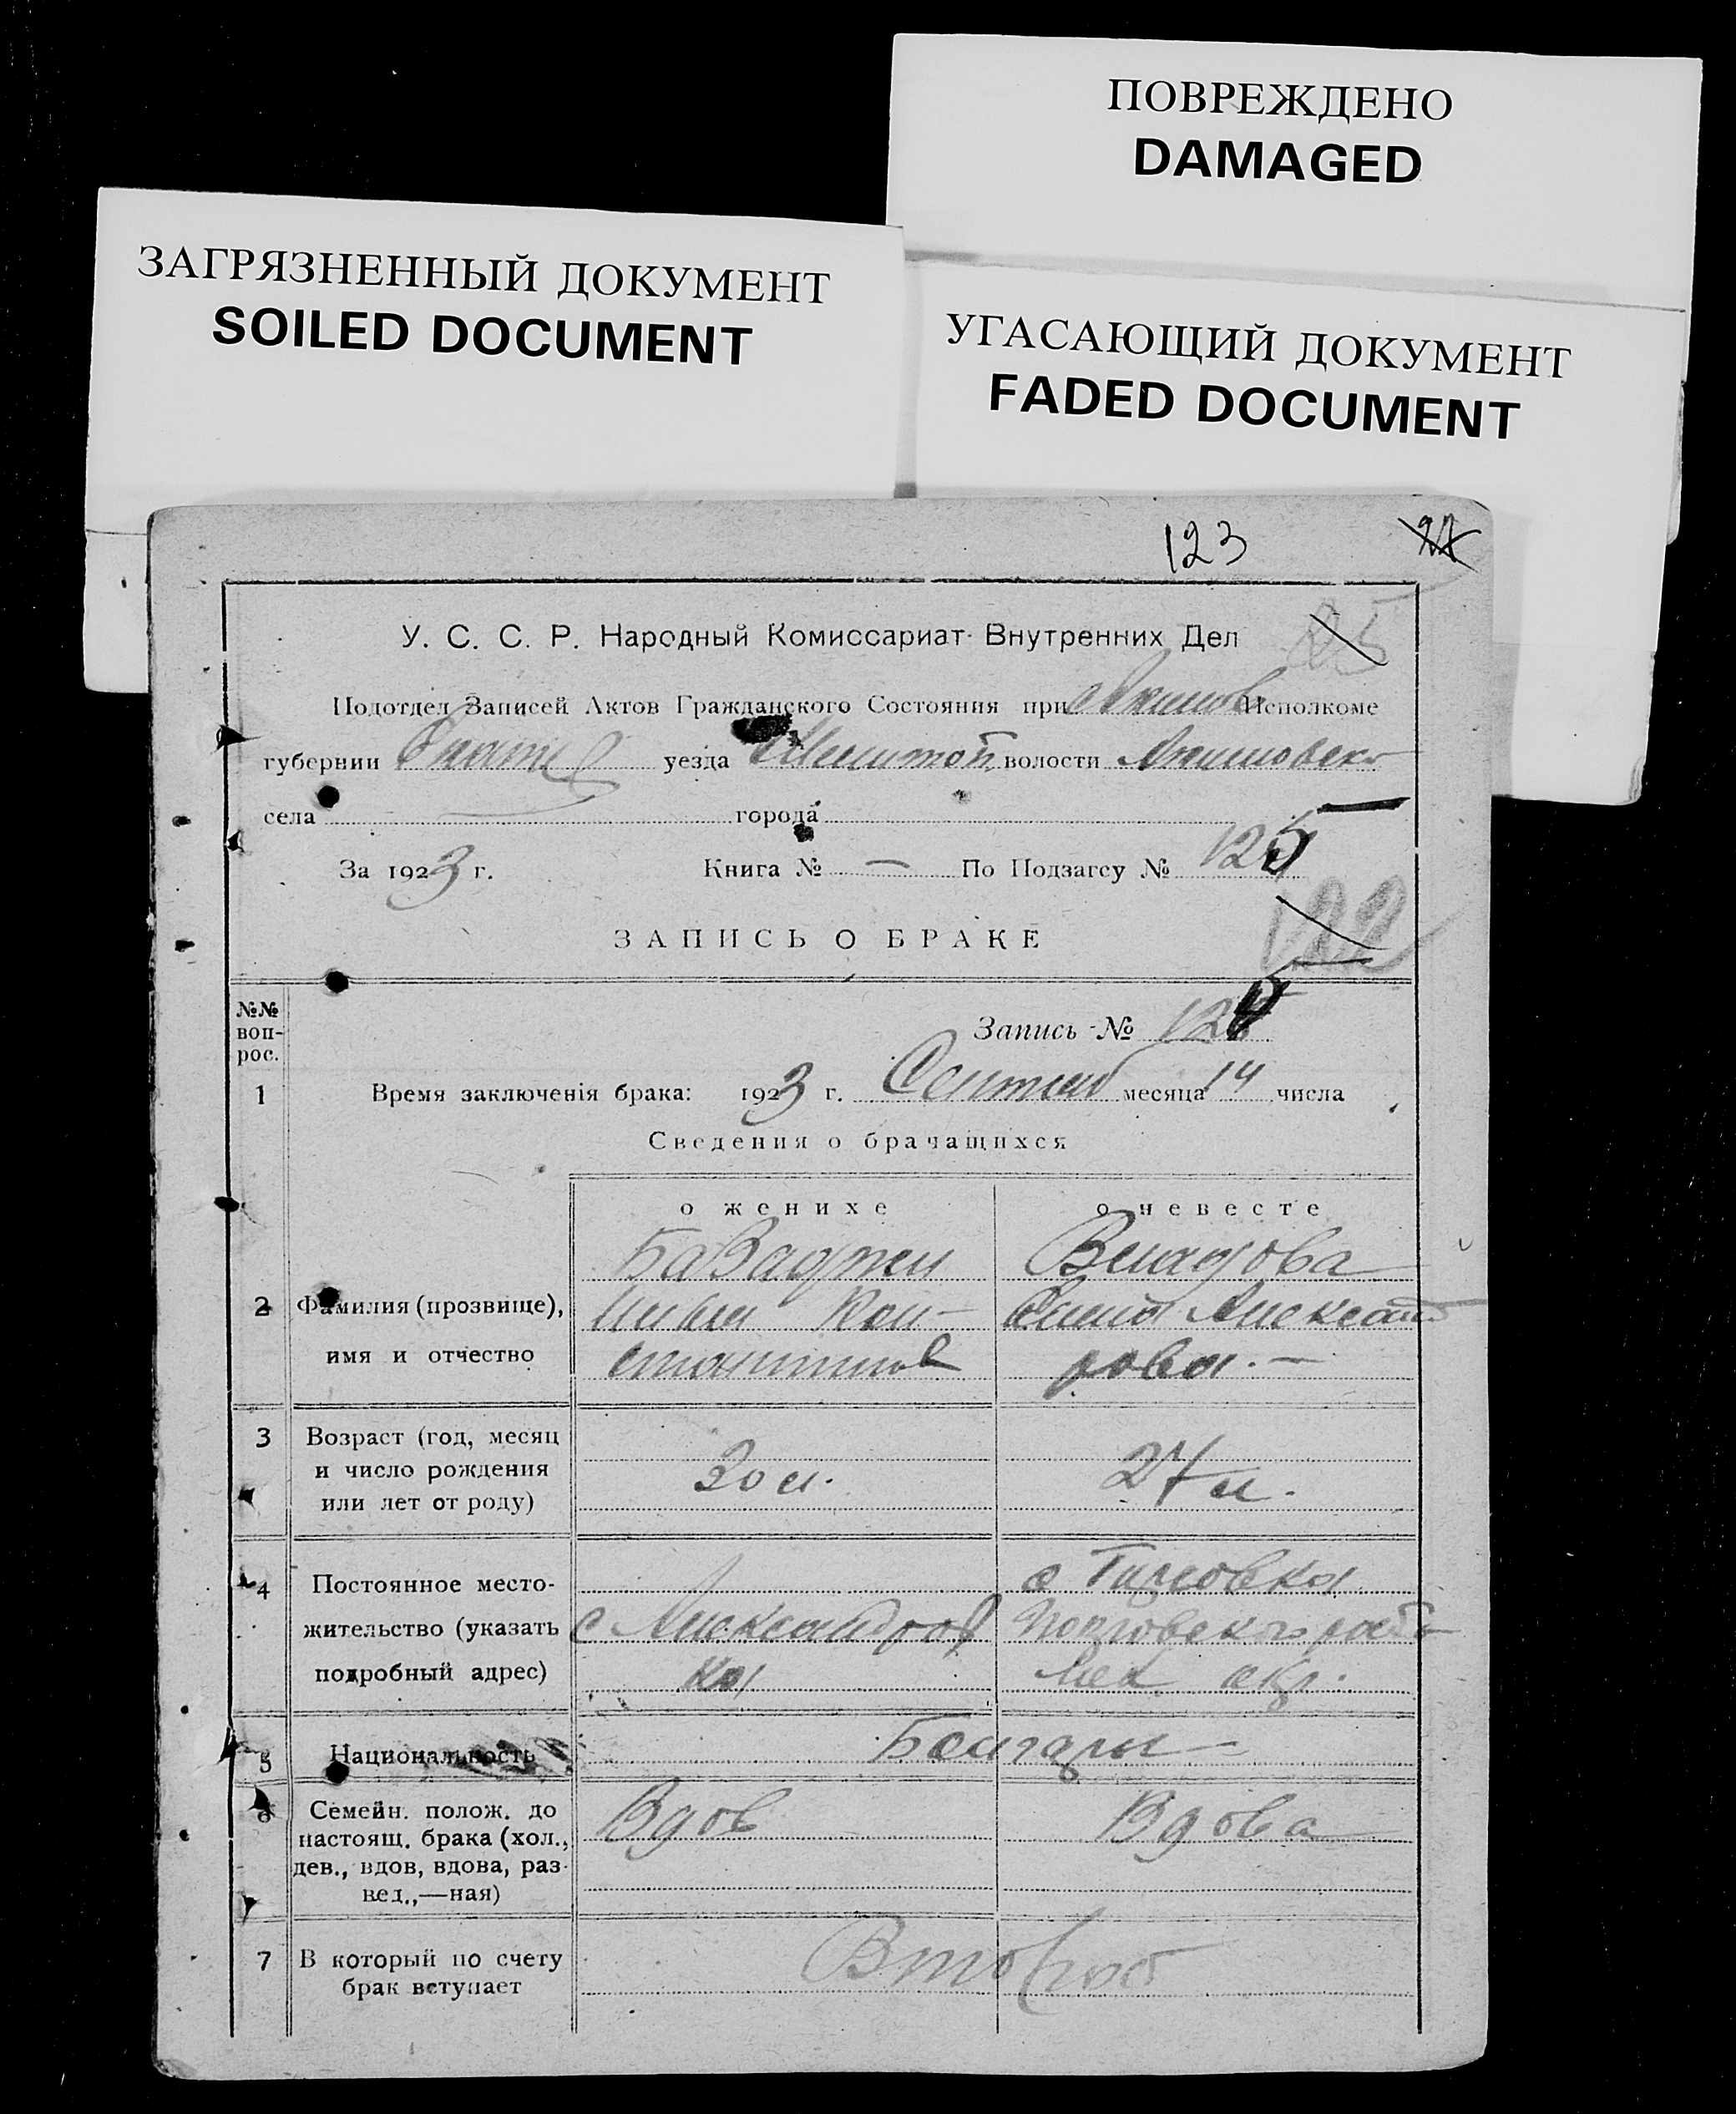 ПОВРЕЖДЕНО
DAMAGED
ЗАГРЯЗНЕННЫЙ ДОКУМЕНТ
SOILED DOCUMENT
УГАСАЮЩИЙ ДОКУМЕНТ
FADED DOCUMENT
123
У. С. С. Р. Народный Комиссариат Внутренних Дел
Подотдел Записей Актов Гражданского Состояния при Исполкоме
губернии уезда волости
села города
За 1923 г. Книга № — По Подзагсу № 125
122
ЗАПИСЬ О БРАКЕ
№№ воп-рос.
Запись № 125
1 Время заключенія брака: 1923 г. Сентяб месяца 14 числа
Сведения о брачащихся
о женихе о невесте
2 Фамилия (прозвище), имя и отчество
Иван Кон-
стантинов
Александ
рова. —
3 Возраст (год, месяц
и число рождения
или лет от роду)
30 л. 27 л.
4 Постоянное место-
жительство (указать
подробный адрес)
с Александров
ка
с
окр.
5 Национальность Болгары
6 Семейн. полож. до
настоящ. брака (хол.,
дев., вдов, вдова, раз-
вед.,—ная)
Вдов Вдова
7 В который по счету
брак вступает
Второй